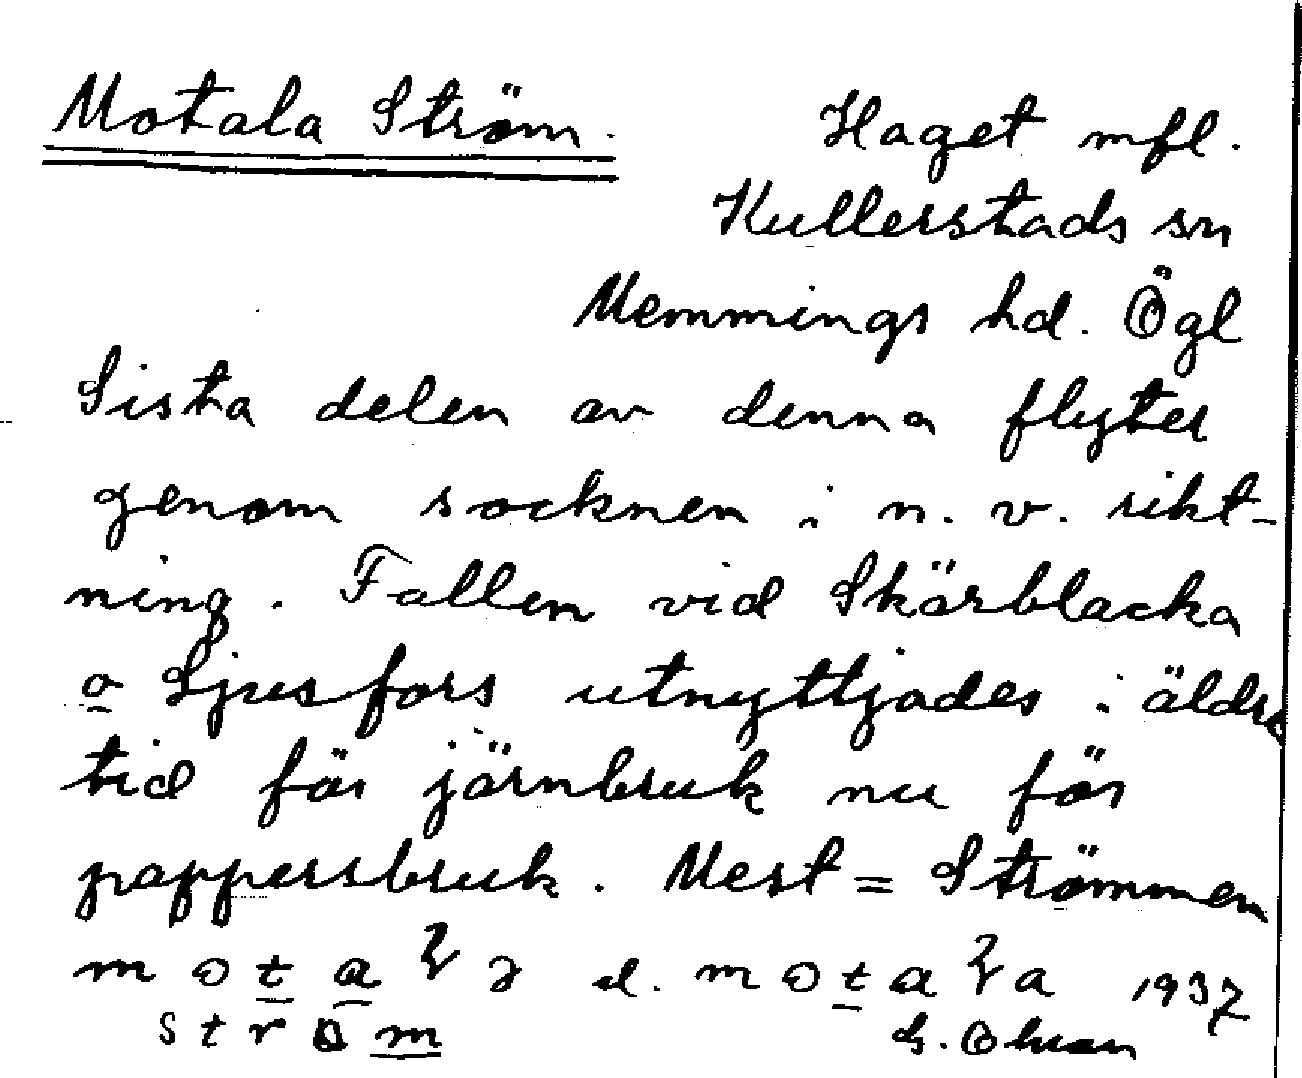 Motala Ström.
Haget mfl.
Kullerstads sn
Memmings hd. Ögl
Sista delen av denna flyter
genom socknen i n. v. rikt-
ning. Fallen vid Skärblacka
o Ljusfors utnyttjades i äldre
tid för järnbruk nu för
pappersbruk. Mest = Strömmen
m o t a d. m o t a a 1937
s t r m